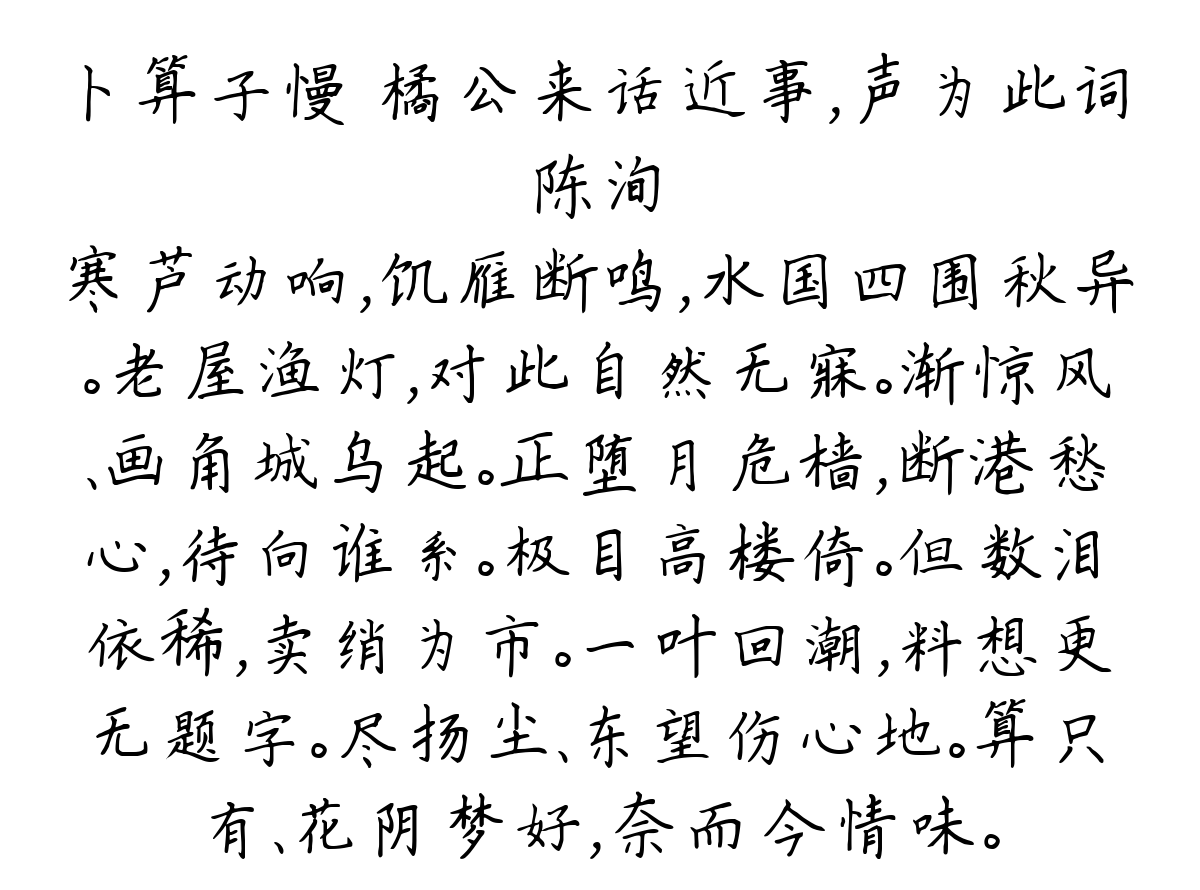 卜算子慢 橘公来话近事,声为此词
陈洵
寒芦动响,饥雁断鸣,水国四围秋异
。老屋渔灯,对此自然无寐。渐惊风
、画角城乌起。正堕月危樯,断港愁
心,待向谁系。极目高楼倚。但数泪
依稀,卖绡为市。一叶回潮,料想更
无题字。尽扬尘、东望伤心地。算只
有、花阴梦好,奈而今情味。